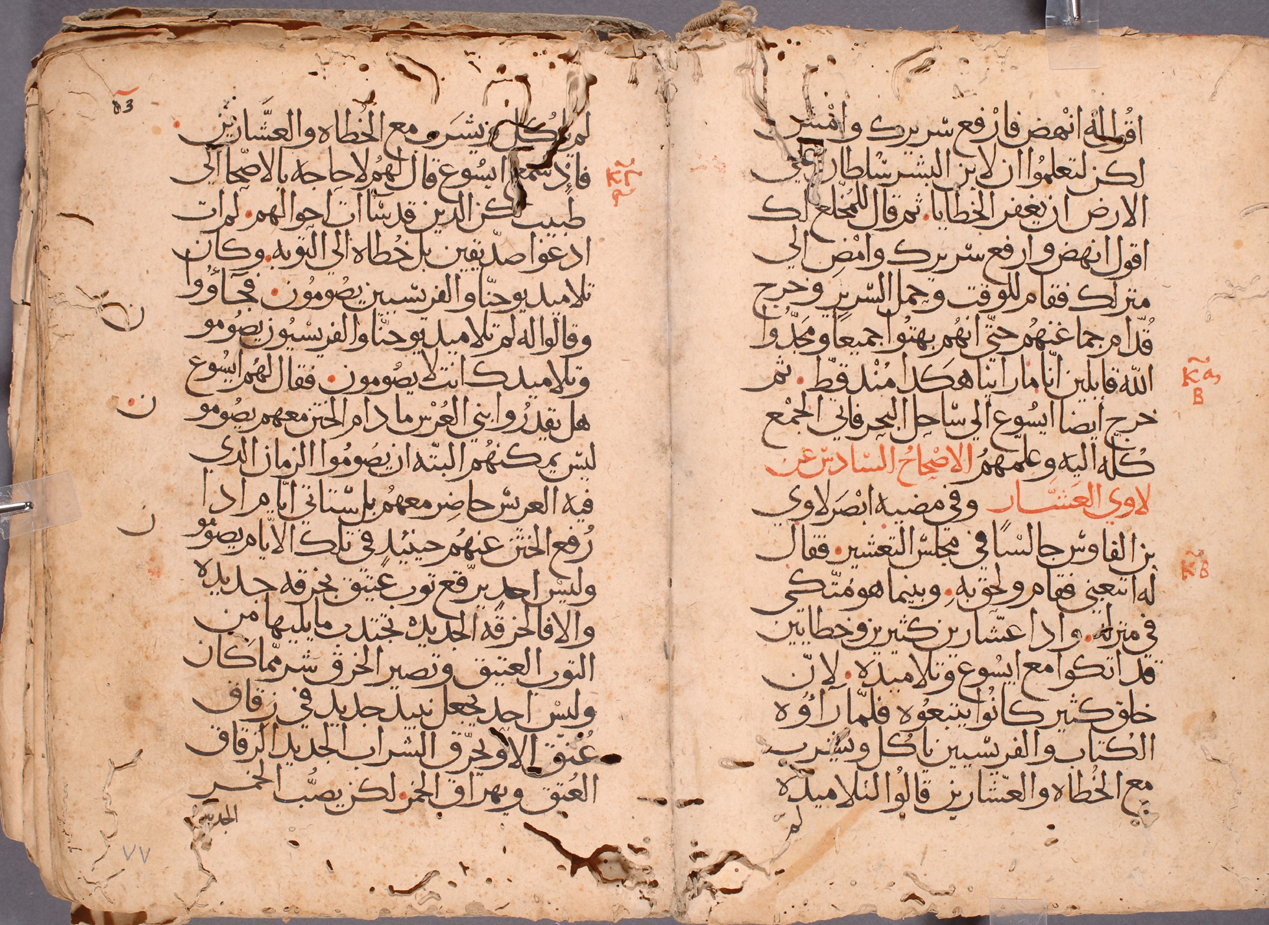 اقول له انهض فارفع سريرك وامش
لكن لتعلموا ان لابن البشر سلطان على
الارض ان يغفر الخطايا. ثم قال للمخلع لك
اقول انهض وارفع سريرك وامض الى
منزلك فقام للوقت وحمل السرير وخرج
قدام جماعتهم حتى انهم بهتوا جميعا ومجدوا
الله قايلين انا ما راينا هكدا مند قط. ثم
خرج ايضا ايسوع الى ساحل البحر فاتى الجمع
كله اليه وعلمهم الاصحاح السادس عن
لاوي العشار وفي مضيه ابصر لاوي
بن الفاوس جالسا في مجلس التعشير. فقال
له اتبعني فقام ولحق به. وبينما هو متكى
في منزله. وادا عشارين كثيرين وخطايين
قد اتكوا مع ايسوع وتلاميده. لان
خلق كثير كانوا يتبعوه فلما راوه
الكتاب والفريسيين ياكل ويشرب
مع الخطاه والعشارين قالوا لتلاميده
لم
لم ياكل ويشرب مع الخطاه والعشارين
فاد سمع ايسوع قال لهم لا حاجه بالاصحا الى
طبيب لكن الدين قد سات احوالهم. لم ات
ادعوا صديقين بل خطاه الى التوبه. وكان
تلاميد يوحنا والفريسيين يصومون. فجاووا
وقالوا له لم تلاميد يوحنا والفريسيون يصومو
وتلاميدك انت لا يصومون. فقال لهم ايسوع
هل يقدروا بني العرس ما دام الختن معهم يصومو
ليس يمكنهم البته ان يصوموا الزمان الدى
فيه العرس حاضر معهم بل ستاتي ايام ادا
رفع الختن عنهم حينيد في تلك الايام يصومو
وليس احد يرقع توب عتيق بخرقه جديده
والا فالخرقه الجديده تجتدب ما يليها من
التوب العتيق وتصير الخرق شر مما كان
وليس احد يجعل نبيد جديد في زقاق
عتيق الا ويخرق الشراب الجديد الزقاق
العتق ويهراق الخمر. لكن يصب الخمر
الجديد
٧٧